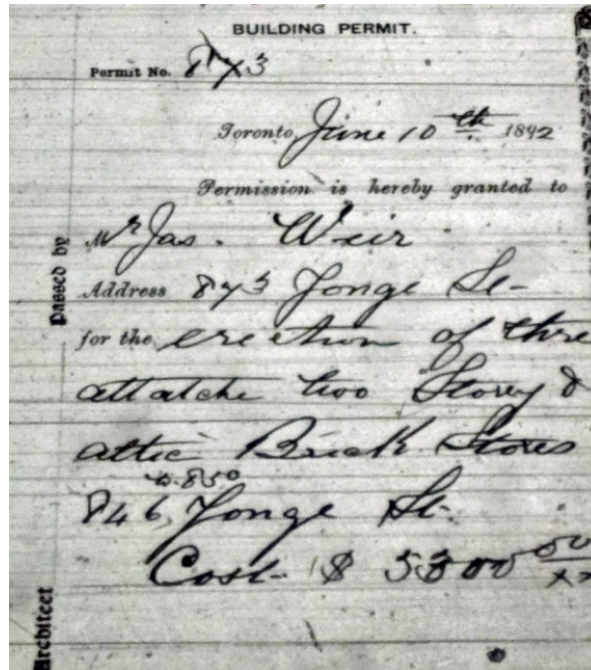 BUILDING PERMIT.
Permit No. 873
Toronto, June 10th 1892
Permission is hereby granted to
Mr Jas. Weir
Address 873 Yonge St-
for the erection of thre
attatche two Storey &
attic Brick Stores
to 850
846 Yonge St.
Cost- $ 5300 00/xx
Passed by
Architect